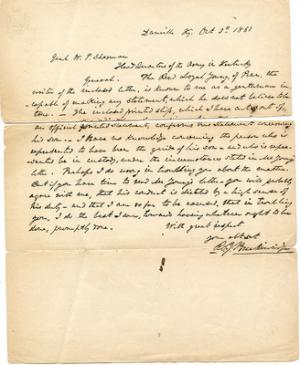 Danville Ky, Oct 3d 1861
Genl W. T. Sherman
Head Quarters of the Army in Kentucky
General. The Revd Loyal Young, of Penn, the
writer of the inclosed letter, is known to me as a gentleman in-
capable of making any statement, which he does not believe to be
true. — The inclosed printed slip, which I have cut out of
an official printed statement, confirms the statement concerning
his son. — I have no knowledge concerning the person who is
represented to have been the guide of his son — and who is repre-
sented to be in custody, under the circumstances stated in Mr Young's
letter. Perhaps I do wrong in troubling you about the matter.
But if you have time to read Mr Young's letter — you will probably
agree with me, that his conduct is dictated by a high sense of
his duty — and that I am so far to be excused, that in troubling
you, I do the best I can, towards having whatever ought to be
done, promptly done. With great respect
your obt svt